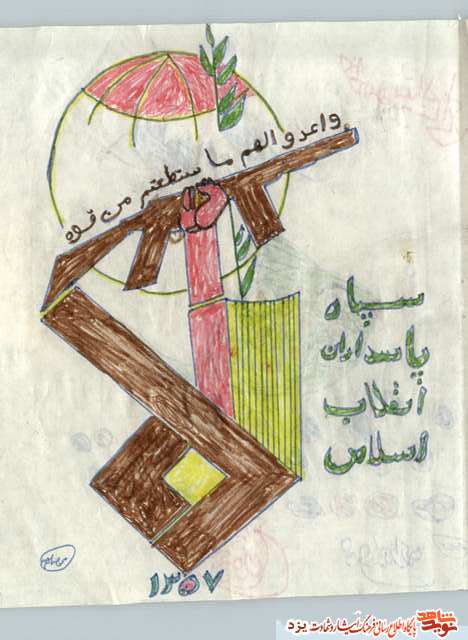 واعدوا لهم ما ستطعتم من قوه
سپاه
پاسداران
انقلاب
اسلامی
۱۳۵۷
نوید شاهد
پایگاه اطلاع رسانی فرهنگ ایثار و شهادت یزد